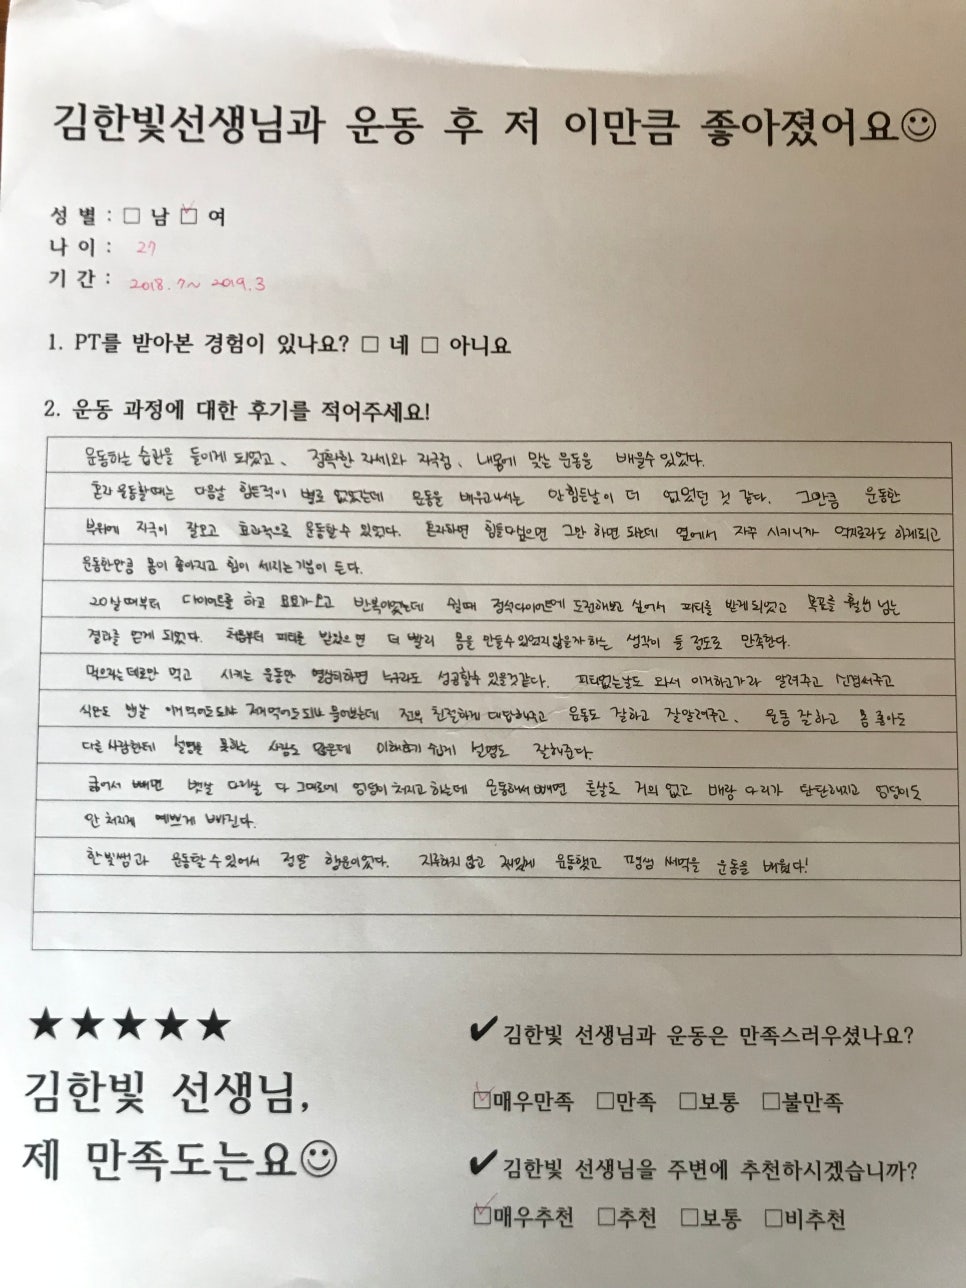 김한빛선생님과 운동 후 저 이만큼 좋아졌어요☺
성 별 : □ 남 ☑ 여
나 이 : 27
기 간 : 2018.7~ 2019.3
1. PT를 받아본 경험이 있나요? □ 네 □ 아니요
2. 운동 과정에 대한 후기를 적어주세요!
운동하는 습관을 들이게 되었고, 정확한 자세와 자극점, 내몸에 맞는 운동을 배울수 있었다.
혼자 운동할때는 다음날 힘든적이 별로 없었는데 운동을 배우고나서는 안힘든날이 더 없었던 것 같다. 그만큼 운동한
부위에 자극이 잘오고 효과적으로 운동할 수 있었다. 혼자하면 힘들다싶으면 그만 하면 되는데 옆에서 자꾸 시키니까 억지로라도 하게되고
운동한만큼 몸이 좋아지고 힘이 세지는 기분이 든다.
20살때부터 다이어트를 하고 요요가오고 반복이었는데 쉴때 정석다이어트에 도전해보고 싶어서 피티를 받게되었고 목표를 훨씬 넘는
결과를 얻게 되었다. 처음부터 피티를 받았으면 더 빨리 몸을 만들수 있었지않을까 하는 생각이 들 정도로 만족한다.
먹으라는데로만 먹고 시키는 운동만 열심히하면 누구라도 성공할수 있을것같다. 피티없는날도 와서 이거하고가라 알려주고 신경써주고
식단도 맨날 이거먹어도되냐 저거먹어도되냐 물어보는데 전부 친절하게 대답해주고 운동도 잘하고 잘알려주고, 운동 잘하고 몸 좋아도
다른 사람한테 설명을 못하는 사람도 많은데 이해하기 쉽게 설명도 잘해준다.
굶어서 빼면 뱃살 다리살 다 그대로에 엉덩이 처지고 하는데 운동해서 빼면 튼살도 거의 없고 배랑 다리가 탄탄해지고 엉덩이도
안 처지게 예쁘게 빠진다.
한빛쌤과 운동할 수 있어서 정말 행운이었다. 지루하지 않고 재밌게 운동했고 평생 써먹을 운동을 배웠다!
★★★★★
김한빛 선생님,
제 만족도는요☺
✔김한빛 선생님과 운동은 만족스러우셨나요?
☑매우만족 □만족 □보통 □불만족
✔김한빛 선생님을 주변에 추천하시겠습니까?
☑매우추천 □추천 □보통 □비추천